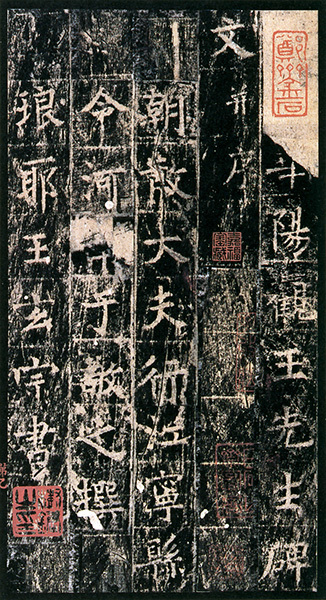 鄭齋金石
陽觀王先生碑
文并序
朝散大夫行江寧縣
令河南于敬之撰
琅耶王玄宗書